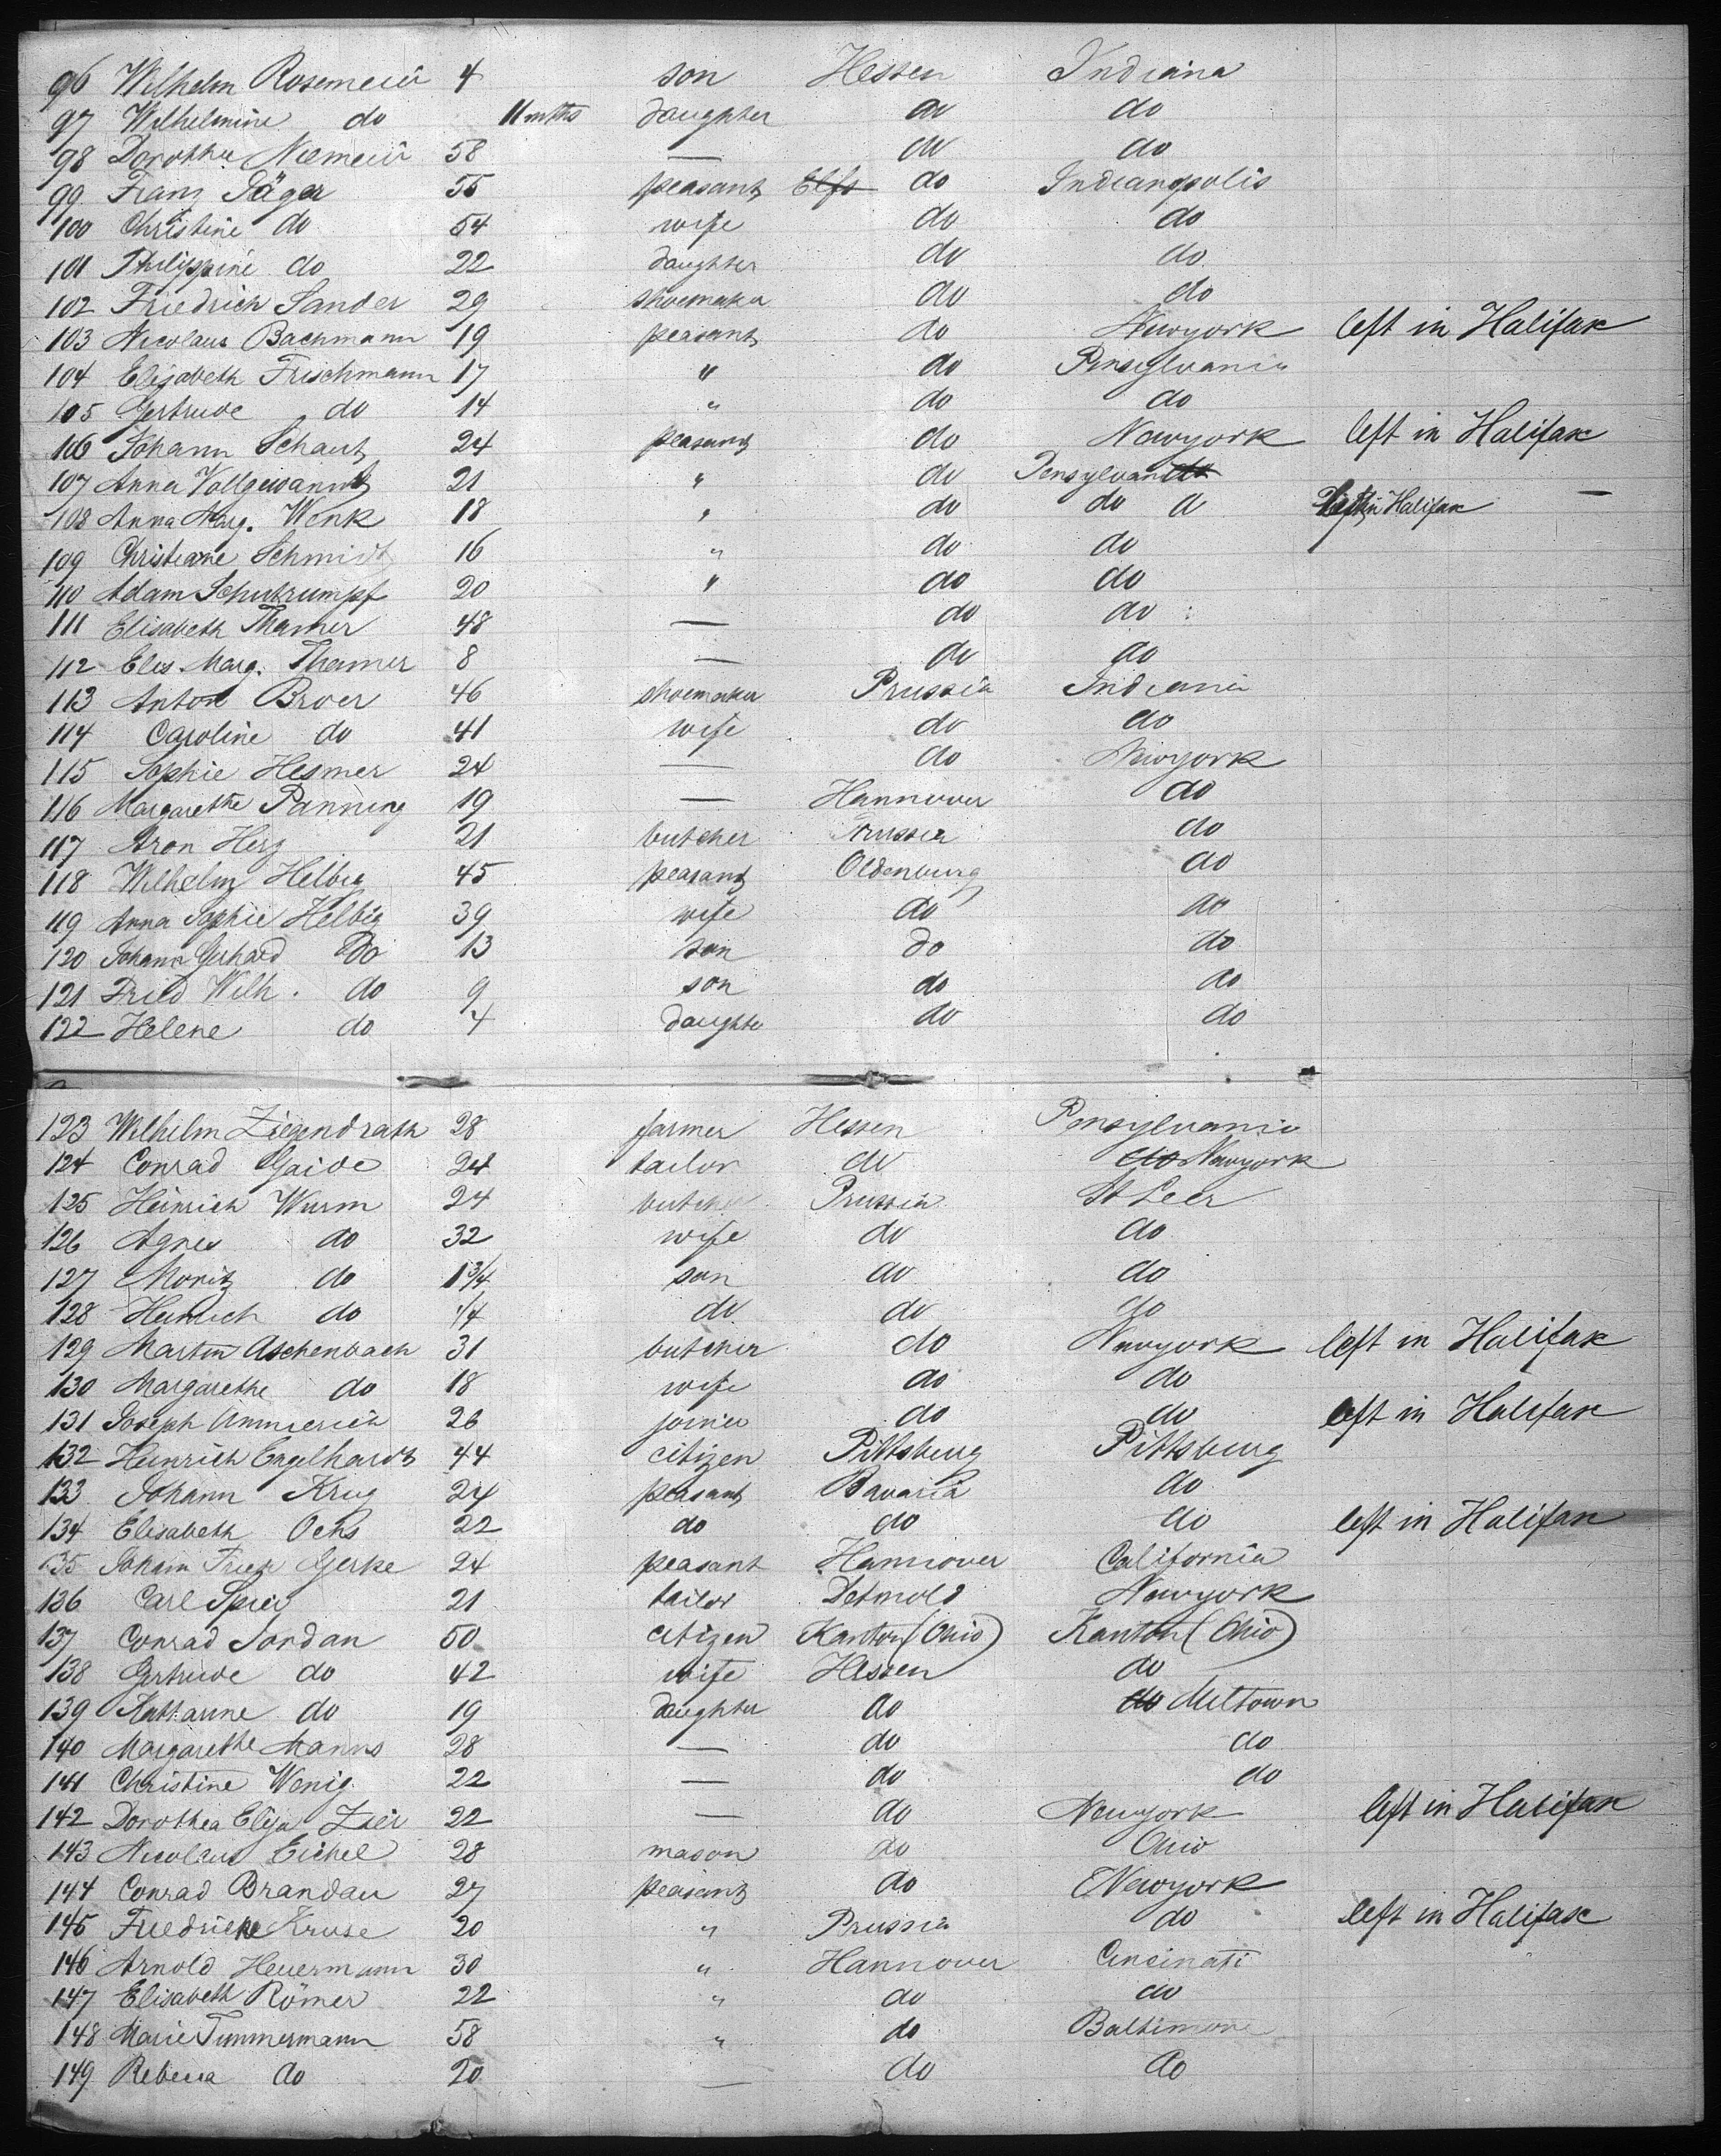 96 Wilhelm Rosemeier 4 son Hessen Indiana
97 Wilhelmine do 11 mths daughter do do
98 Dorothee Niemeier 58 — do do
99 Franz Jäger 55 peasant do Indianopolis
100 Christine do 54 wife do do
101 Philippine do 22 daughter do do
102 Friedrich Sander 29 shoemaker do do
103 Nicolaus Bachmann 19 peasant do Newyork left in Halifax
104 Elisabeth Frischmann 17 " do Pensylvania
105 Gertrude do 14 " do do
106 Johann Schaut 24 peasant do Newyork left in Halifax
107 Anna Vollgewannt 21 " do Pensylvan
108 Anna Marg. Wenk 18 " do do a left in Halifax —
109 Christiane Schmidt 16 " do do
110 Adam Schutrumpf 20 " do do
111 Elisabeth Thamer 48 — do do
112 Elis. Marg. Thamer 8 — do do
113 Anton Broer 46 shoemaker Prussia Indiana
114 Caroline do 41 wife do do
115 Sophie Hesmer 24 — do Newyork
116 Margarethe Panning 19 — Hannover do
117 Aron Herz 21 butcher Prussia do
118 Wilhelm Helbig 45 peasant Oldenburg do
119 Anna Sophie Helbig 39 wife do do
120 Johann Gerhard Do 13 son do do
121 Fried Wilh. do 9 son do do
122 Helene do 4 daughter do do
123 Wilhelm Ziegendrath 28 farmer Hessen Pensylvania
124 Conrad Gaide 24 tailor do do Newyork
125 Heinrich Wurm 24 butcher Prussia
126 Agnes do 32 wife do do
127 Moritz do 1 3/4 son do do
128 Heinrich do 1/4 do do do
129 Martin Aschenbach 31 butcher do Newyork left in Halifax
130 Margarethe do 18 wife do do
131 Joseph Ammerich 26 joiner do do left in Halifax
132 Heinrich Engelhardt 44 citizen Pittsburg Pittsburg
133 Johann Krug 24 peasant Bavaria do
134 Elisabeth Ochs 22 do do do left in Halifax
135 Johann Fried Gerke 24 peasant Hannover California
136 Carl Spier 21 tailor Detmold Newyork
137 Conrad Jordan 50 citizen Kanton (Ohio) Kanton (Ohio)
138 Gertrude do 42 wife Hessen do
139 Katharine do 19 daughter do do Meltown
140 Margarethe Manns 28 — do do
141 Christine Wenig 22 — do do
142 Dorothea Elisa Zier 22 — do Newyork left in Halifax
143 Nicolaus Eichel 28 mason do Ohio
144 Conrad Brandau 27 peasant do Newyork
145 Friedrieke Kruse 20 " Prussia do left in Halifax
146 Arnold Heuermann 30 " Hannover Cincinati
147 Elisabeth Römer 22 " do do
148 Marie Timmermann 58 " do Baltimore
149 Rebecca do 20 — do do